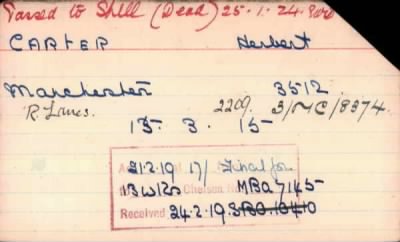 Passed to Shell (Dead) 25.1.24.
CARTER Herbert
Manchester 3512
R. Lancs. 2209. 3/MC/8374.
15 . 3 . 15
21.2.19 17/ Final for
Chelsea MBQ7145
Received 24.2.19.